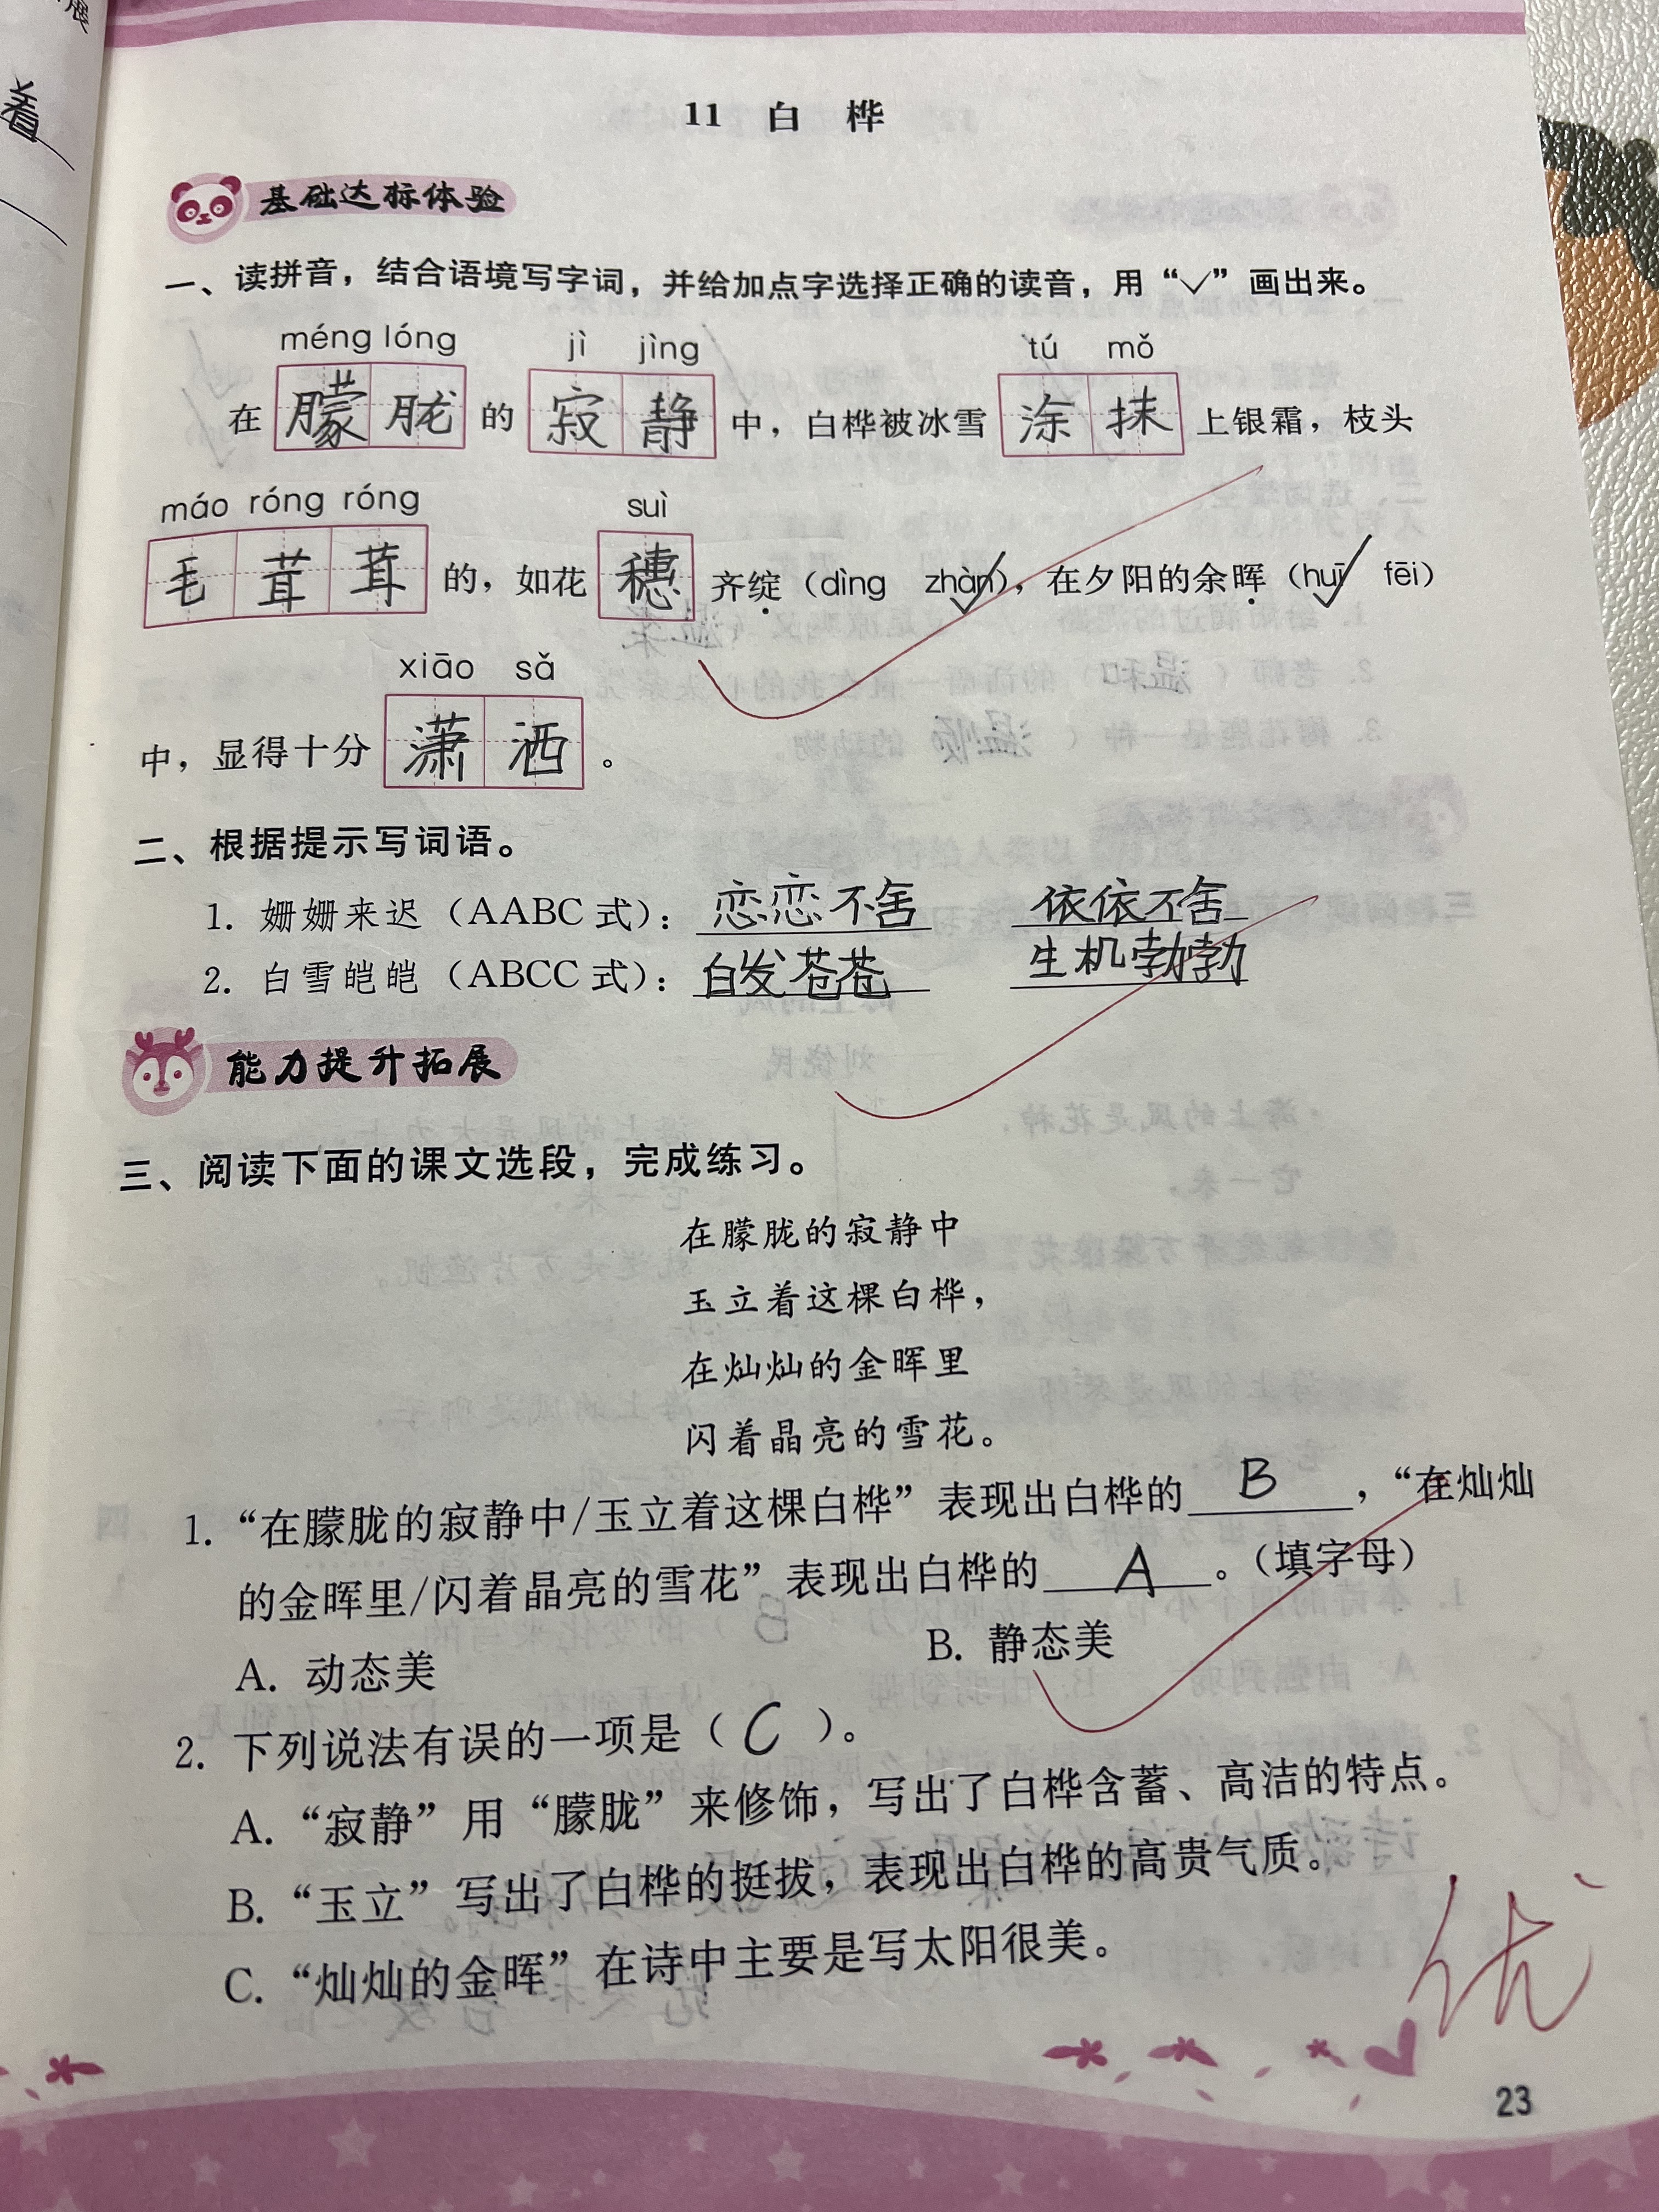 展
着
11 白 桦
基础达标体验
一、读拼音，结合语境写字词，并给加点字选择正确的读音，用“✓”画出来。
méng lóng jì jìng tú mǒ
在 朦胧 的 寂静 中，白桦被冰雪 涂抹 上银霜，枝头
máo róng róng suì
毛茸茸 的，如花 穗 齐绽（dìng zhàn✓），在夕阳的余晖（huī✓ fēi）
xiāo sǎ
中，显得十分 潇洒 。
二、根据提示写词语。
1. 姗姗来迟（AABC 式）：恋恋不舍 依依不舍
2. 白雪皑皑（ABCC 式）：白发苍苍 生机勃勃
能力提升拓展
三、阅读下面的课文选段，完成练习。
在朦胧的寂静中
玉立着这棵白桦，
在灿灿的金晖里
闪着晶亮的雪花。
1. “在朦胧的寂静中/玉立着这棵白桦”表现出白桦的 B ，“在灿灿
的金晖里/闪着晶亮的雪花”表现出白桦的 A 。（填字母）
A. 动态美 B. 静态美
2. 下列说法有误的一项是（ C ）。
A. “寂静”用“朦胧”来修饰，写出了白桦含蓄、高洁的特点。
B. “玉立”写出了白桦的挺拔，表现出白桦的高贵气质。
C. “灿灿的金晖”在诗中主要是写太阳很美。
优
23